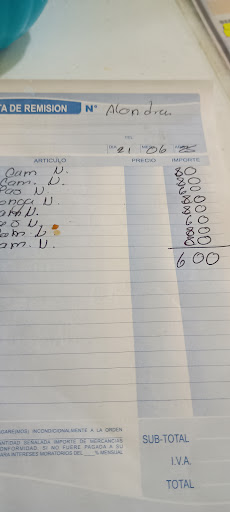 TA DE REMISION N° Alondra
DIA 21 06
ARTICULO PRECIO IMPORTE
Cam N. 80
Cam. N. 80
Pao N. 60
onga N. 80
N. 80
N. 60
N. 80
am. N. 80
600
GARE(MOS) INCONDICIONALMENTE A LA ORDEN
CANTIDAD SEÑALADA IMPORTE DE MERCANCIAS
CONFORMIDAD. SI NO FUERE PAGADA A SU
ARA INTERESES MORATORIOS DEL ___% MENSUAL
SUB-TOTAL
I.V.A.
TOTAL